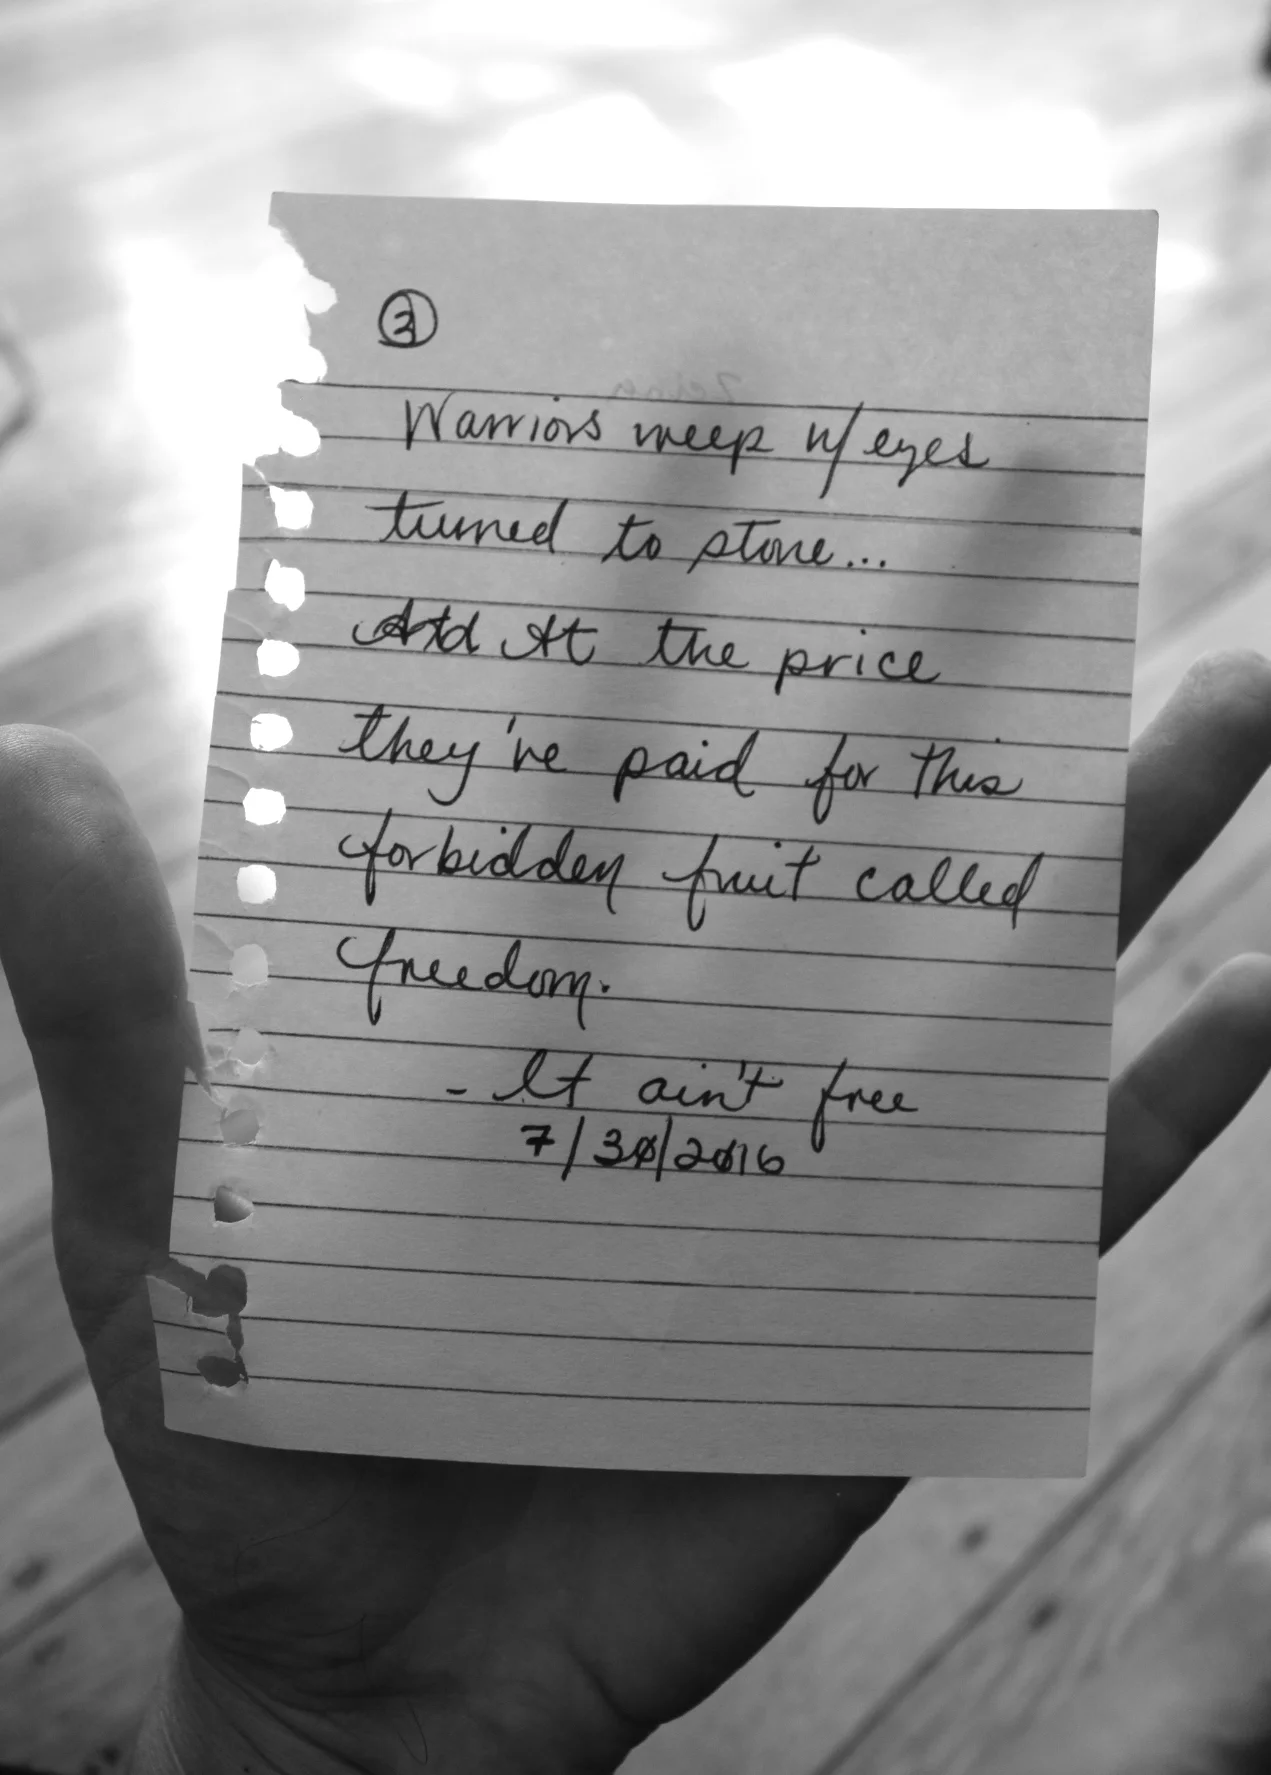 3
Warriors weep w/ eyes
turned to stone...
At the price
they've paid for this
forbidden fruit called
freedom.
- It ain't free
7/30/2016